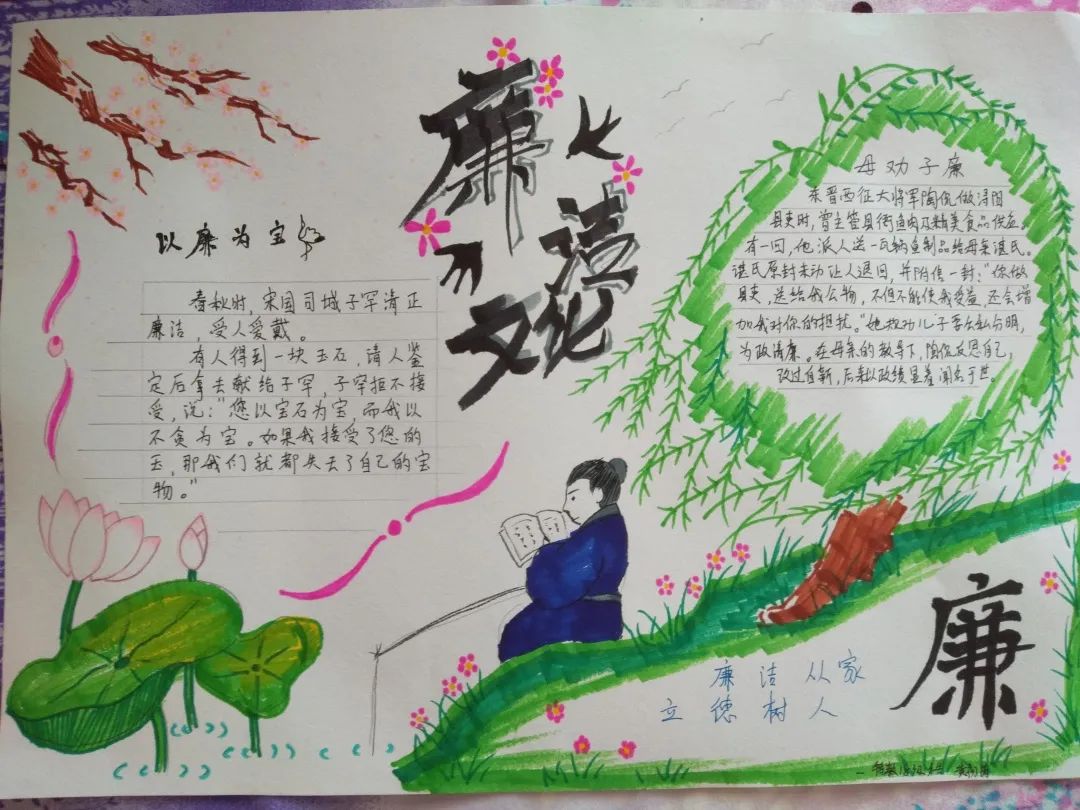 廉洁
文化
以廉为宝
春秋时,宋国司城子罕清正
廉洁,受人爱戴。
有人得到一块玉石,请人鉴
定后拿去献给子罕,子罕拒不接
受,说:“您以宝石为宝,而我以
不贪为宝。如果我接受了您的
玉,那我们就都失去了自己的宝
物。”
母劝子廉
东晋西征大将军陶侃做浔阳
县吏时,曾主管具街鱼肉及精美食品供应。
有一回,他派人送一瓦锅鱼制品给母亲湛氏。
湛氏原封未动让人退回,并附信一封:“你做
县吏,送给我公物,不但不能使我受益,还会增
加我对你的担扰。”她教劝儿子要公私分明,
为政清廉。在母亲的教导下,陶侃反思自己,
改过自新,后来以政绩显著闻名于世。
廉洁从家
立德树人
廉